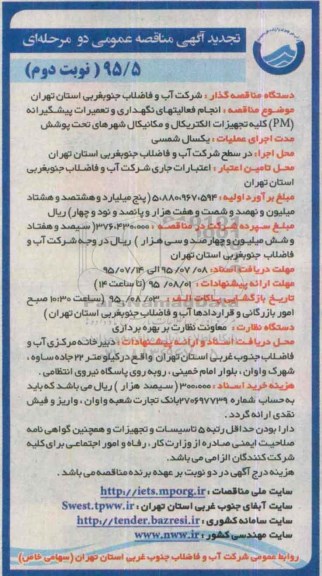 تجدید آگهی مناقصه عمومی دو مرحله‌ای
۹۵/۵ ( نوبت دوم )
دستگاه مناقصه گذار : شرکت آب و فاضلاب جنوبغربی استان تهران
موضوع مناقصه : انجام فعالیتهای نگهداری و تعمیرات پیشگیرانه
(PM) کلیه تجهیزات الکتریکال و مکانیکال شهرهای تحت پوشش
مدت اجرای عملیات : یکسال شمسی
محل اجرا: در سطح شرکت آب و فاضلاب جنوبغربی استان تهران
محل تامین اعتبار : اعتبارات جاری شرکت آب و فاضلاب جنوبغربی
استان تهران
مبلغ برآورد اولیه : ۵،۸۸۰،۹۶۷،۵۹۴ ( پنج میلیارد و هشتصد و هشتاد
میلیون و نهصد و شصت و هفت هزار و پانصد و نود و چهار) ریال
مبلغ سپرده شرکت در مناقصه : ۳۷۶،۴۳۰،۰۰۰( سیصد و هفتاد
و شش میلیون و چهارصد و سی هزار ) ریال در وجه شرکت آب و
فاضلاب جنوبغربی استان تهران
مهلت دریافت اسناد: ۹۵/۰۷/۰۸ الی ۹۵/۰۷/۱۴
مهلت ارائه پیشنهادات : ۹۵/۰۸/۰۱ (تا ساعت ۱۴)
تاریخ بازگشایی پاکات الف : ۹۵/۰۸/۰۳ (ساعت ۱۰:۳۰ صبح
امور بازرگانی و قراردادها آب و فاضلاب جنوبغربی استان تهران )
دستگاه نظارت : معاونت نظارت بر بهره برداری
محل دریافت اسناد و ارائه پیشنهادات : دبیرخانه مرکزی آب و
فاضلاب جنوب غربی استان تهران واقع در کیلومتر ۲۲ جاده ساوه ،
شهرک واوان ، بلوار امام خمینی ، روبه روی پاسگاه نیروی انتظامی .
هزینه خرید اسناد : ۳۰۰،۰۰۰ ( سیصد هزار ) ریال می باشد که باید
به حساب شماره ۲۷۰۶۹۷۷۳۹ بانک تجارت شعبه واوان ، واریز و فیش
نقدی ارائه گردد .
دارا بودن حداقل رتبه ۵ تاسیسات و تجهیزات و همچنین گواهی نامه
صلاحیت ایمنی صادره از وزارت کار ، رفاه و امور اجتماعی برای کلیه
شرکت کنندگان الزامی می باشد.
هزینه درج آگهی در دو نوبت بر عهده برنده مناقصه می باشد .
سایت ملی مناقصات : http://iets.mporg.ir
سایت آبفای جنوب غربی استان تهران : Swest.tpww.ir
سایت سامانه کشوری : http://tender.bazresi.ir
سایت مهندسی کشور : www.nww.ir
روابط عمومی شرکت آب و فاضلاب جنوب غربی استان تهران (سهامی خاص)